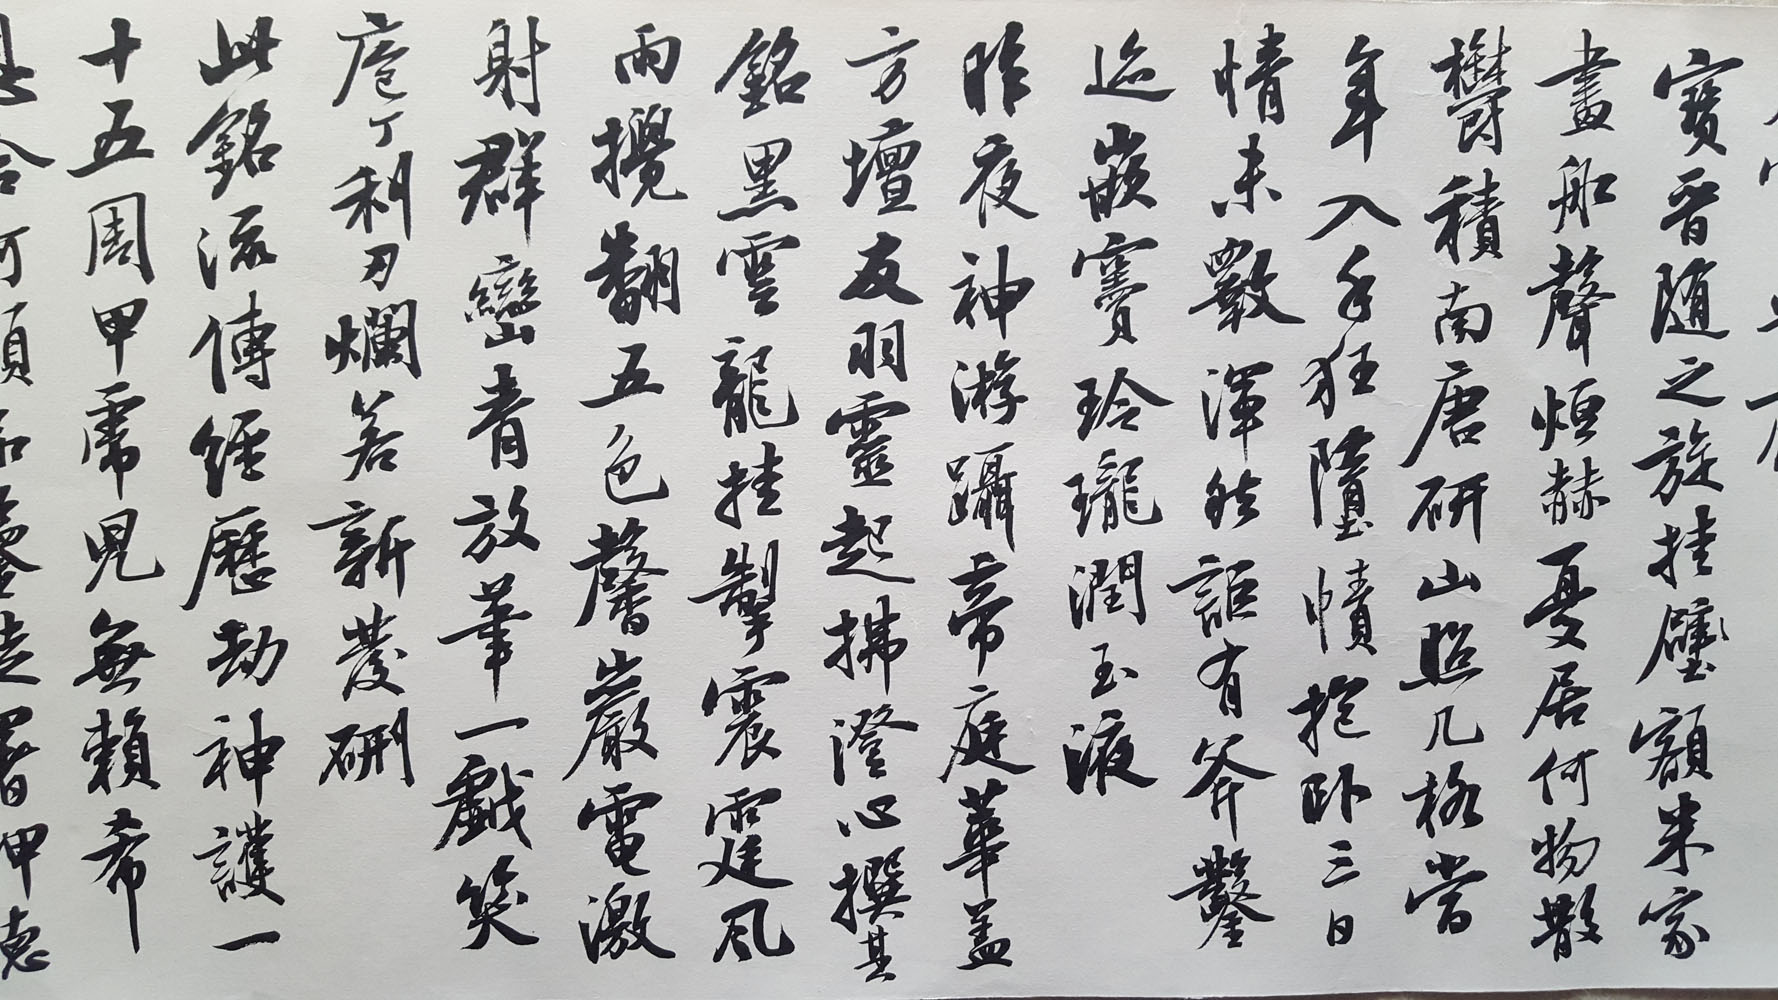 寶晉隨之旋挂壁額米家
畫船聲烜赫憂居何物散
鬱積南唐研山照几格當
年入手狂墮幘抱臥三日
情未斁渾然詎有斧鑿
迹嵌竇玲瓏潤玉液
昨夜神游躡帝庭華蓋
方壇友羽靈起拂澄心撰其
銘黑雲龍挂掣震霆風
雨攪翻五色馨巖電激
射群巒青放筆一戲笑
庖丁利刃爛若新發硎
此銘流傳經歷劫神護一
十五周甲虎兒無賴希